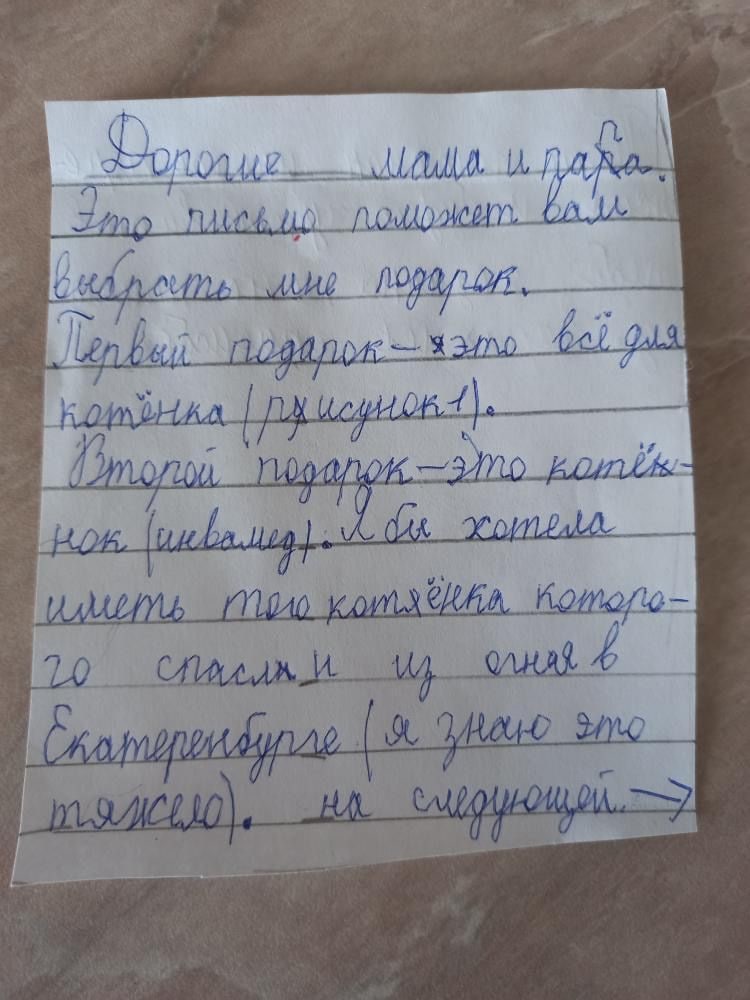 Дорогие мама и папа.
Это письмо поможет вам
выбрать мне подарок.
Первый подарок — это всё для
котёнка (рисунок 1).
Второй подарок — это котён-
нок (инвамед). Я бы хотела
иметь того котёнка которо-
го спасли из огная в
Екатеренбурге (я знаю это
тяжело). на следующей →